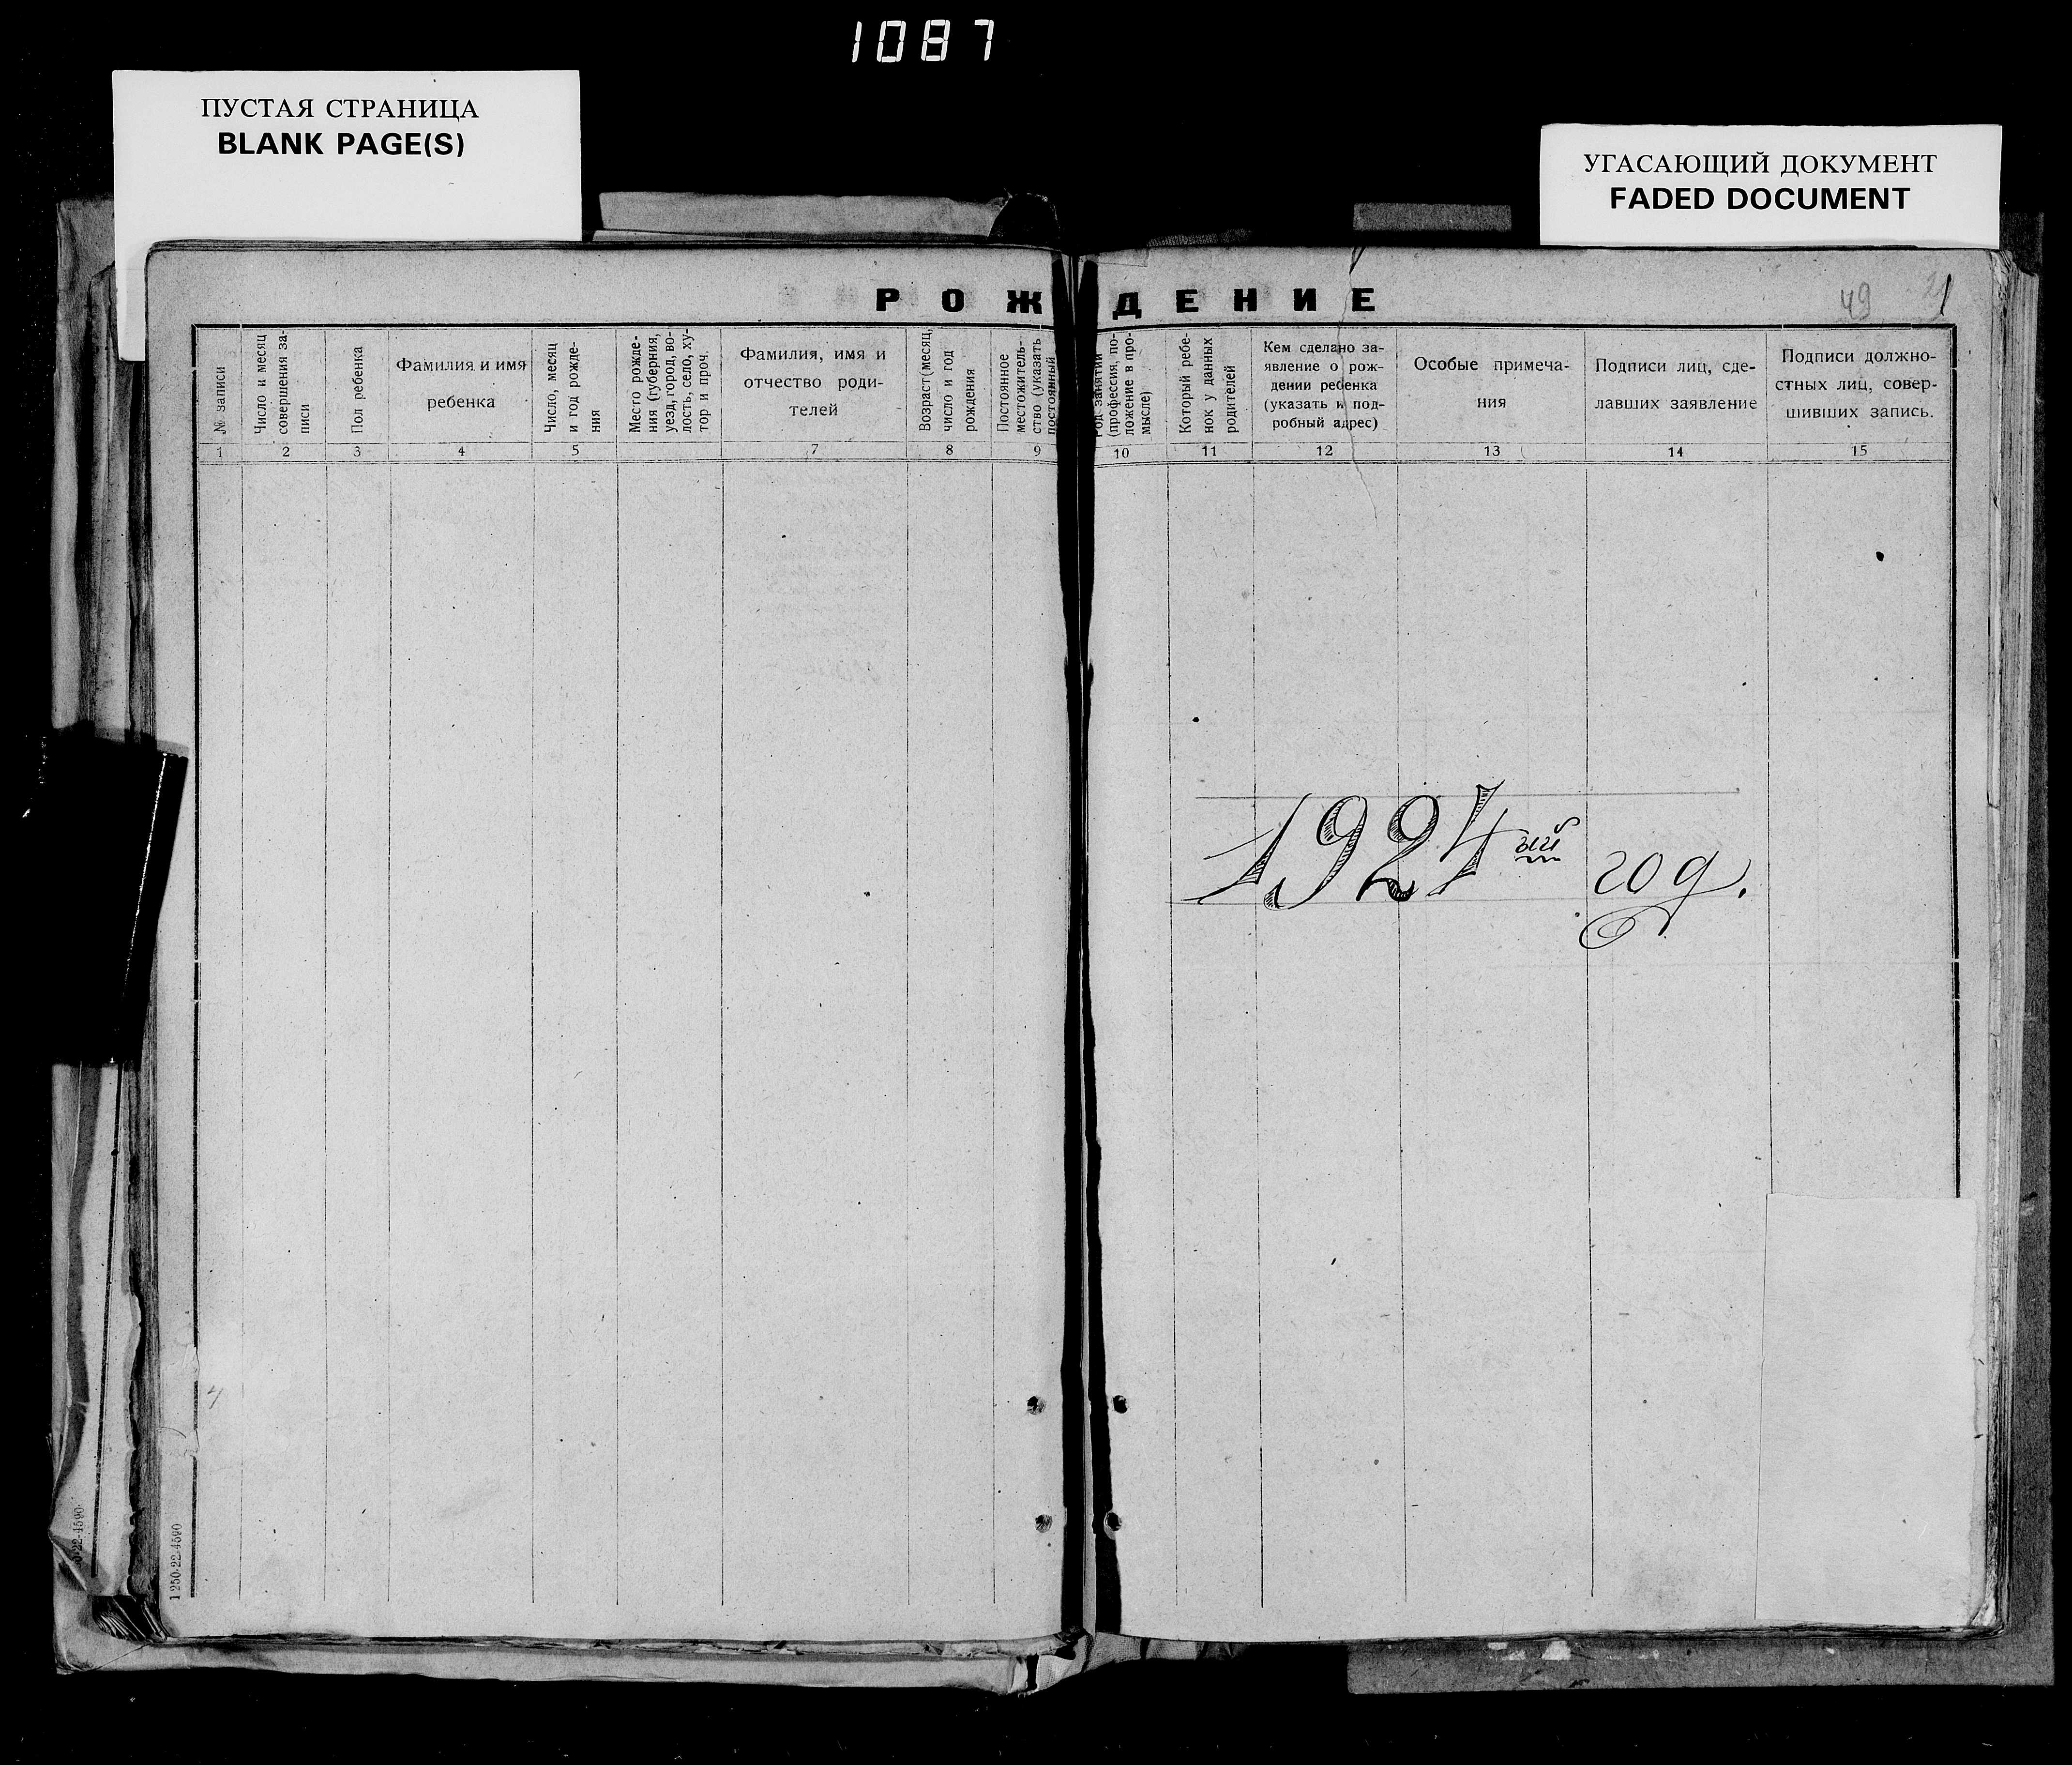 1087
ПУСТАЯ СТРАНИЦА
BLANK PAGE(S)
УГАСАЮЩИЙ ДОКУМЕНТ
FADED DOCUMENT
РОЖДЕНИЕ
49
№ записи
Число и месяц
совершения за-
писи
Пол ребенка
Фамилия и имя
ребенка
Число, месяц
и год рожде-
ния
Место рожде-
ния (губерния,
уезд, город, во-
лость, село, ху-
тор и проч.
Фамилия, имя и
отчество роди-
телей
Возраст (месяц,
число и год
рождения
Постоянное
местожитель-
ство (указать
постоянный
Род занятий
(профессия, по-
ложение в про-
мысле)
Который ребе-
нок у данных
родителей
Кем сделано за-
явление о рож-
дении ребенка
(указать и под-
робный адрес)
Особые примеча-
ния
Подписи лиц, сде-
лавших заявление
Подписи должно-
стных лиц, совер-
шивших запись.
1 2 3 4 5 7 8 9 10 11 12 13 14 15
1924 ый год.
1 250-22-4590